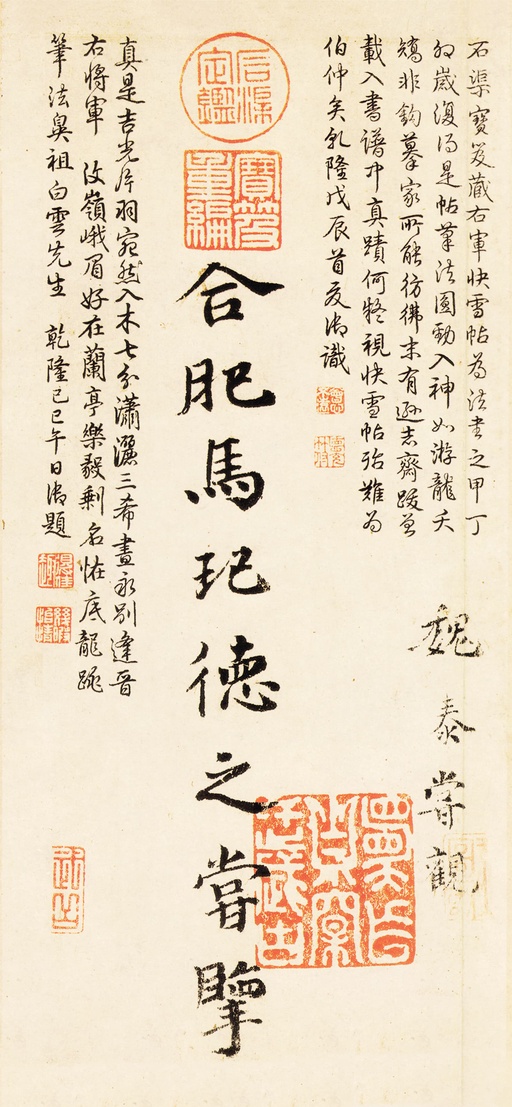 石渠寶笈藏右軍快雪帖為法書之甲丁
卯歲復得是帖筆法圓勁入神如游龍夭
矯非鈎摹家所能彷彿末有遜志齋跋曾
載入書譜中真蹟何疑視快雪帖殆難為
伯仲矣乾隆戊辰首夏御識
魏泰嘗觀
石渠定鑑
寶笈重編
合肥馬玘德之嘗擥
真是吉光片羽宛然入木七分瀟灑三希晝永別逢晉
右將軍 汶嶺峨眉好在蘭亭樂毅剩名恠底龍跳
筆法鼻祖白雲先生 乾隆己巳午日御題